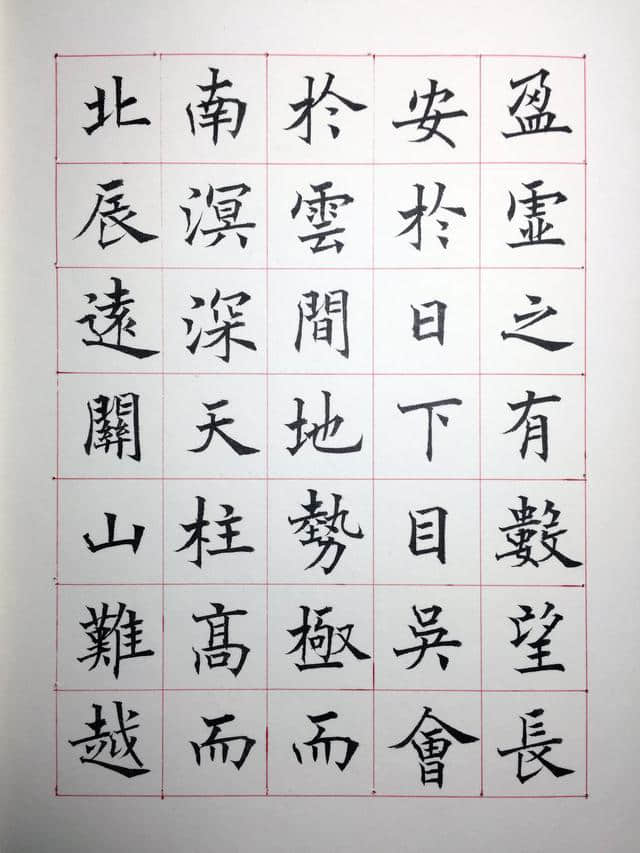 盈虛之有數望長
安於日下目吳會
於雲間地勢極而
南溟深天柱高而
北辰遠關山難越